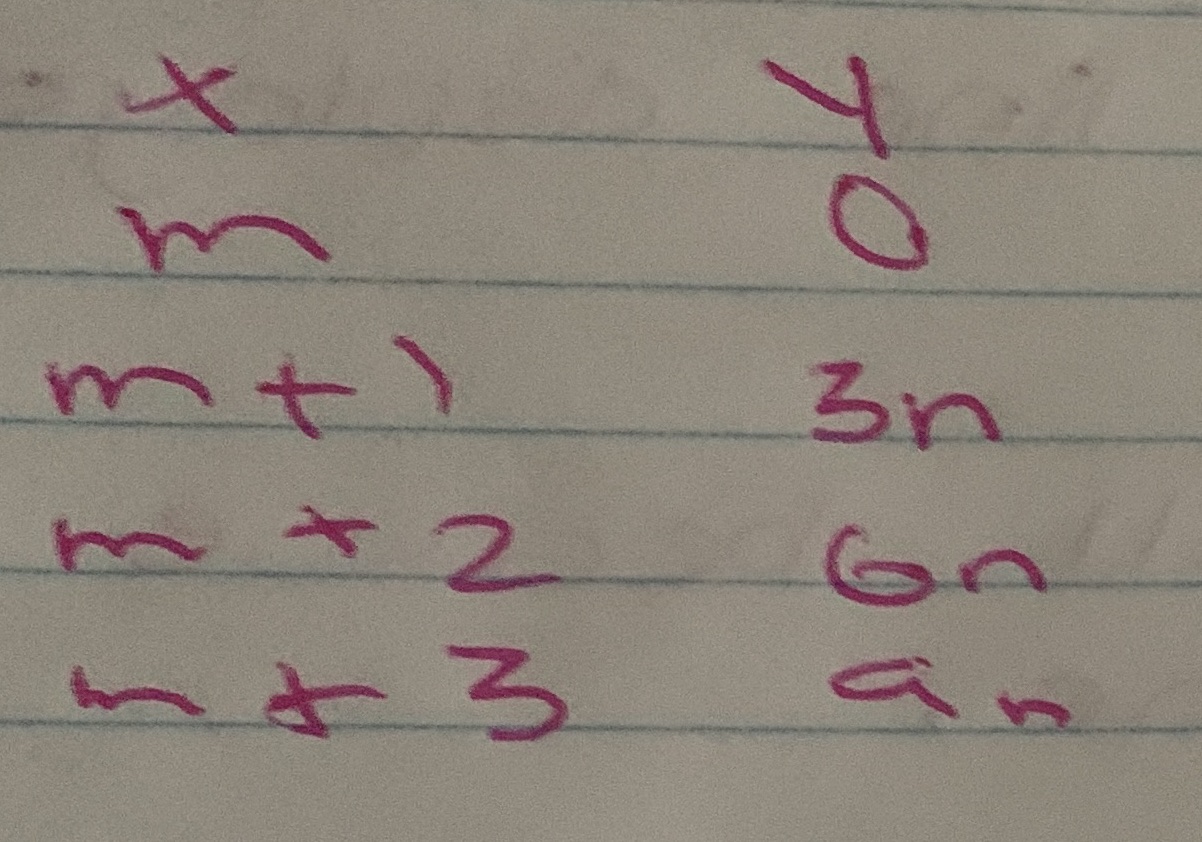 x y
m 0
m + 1 3n
m + 2 6n
m + 3 9n